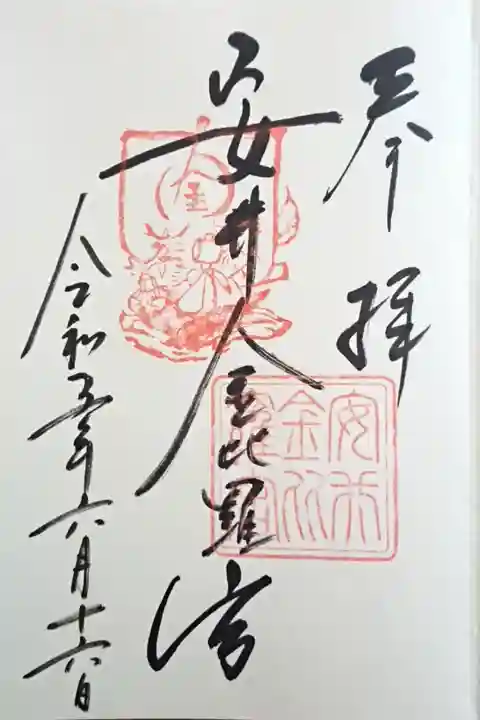 奉拝
安井金毘羅宮
令和五年六月十六日
金
安井金比羅宮